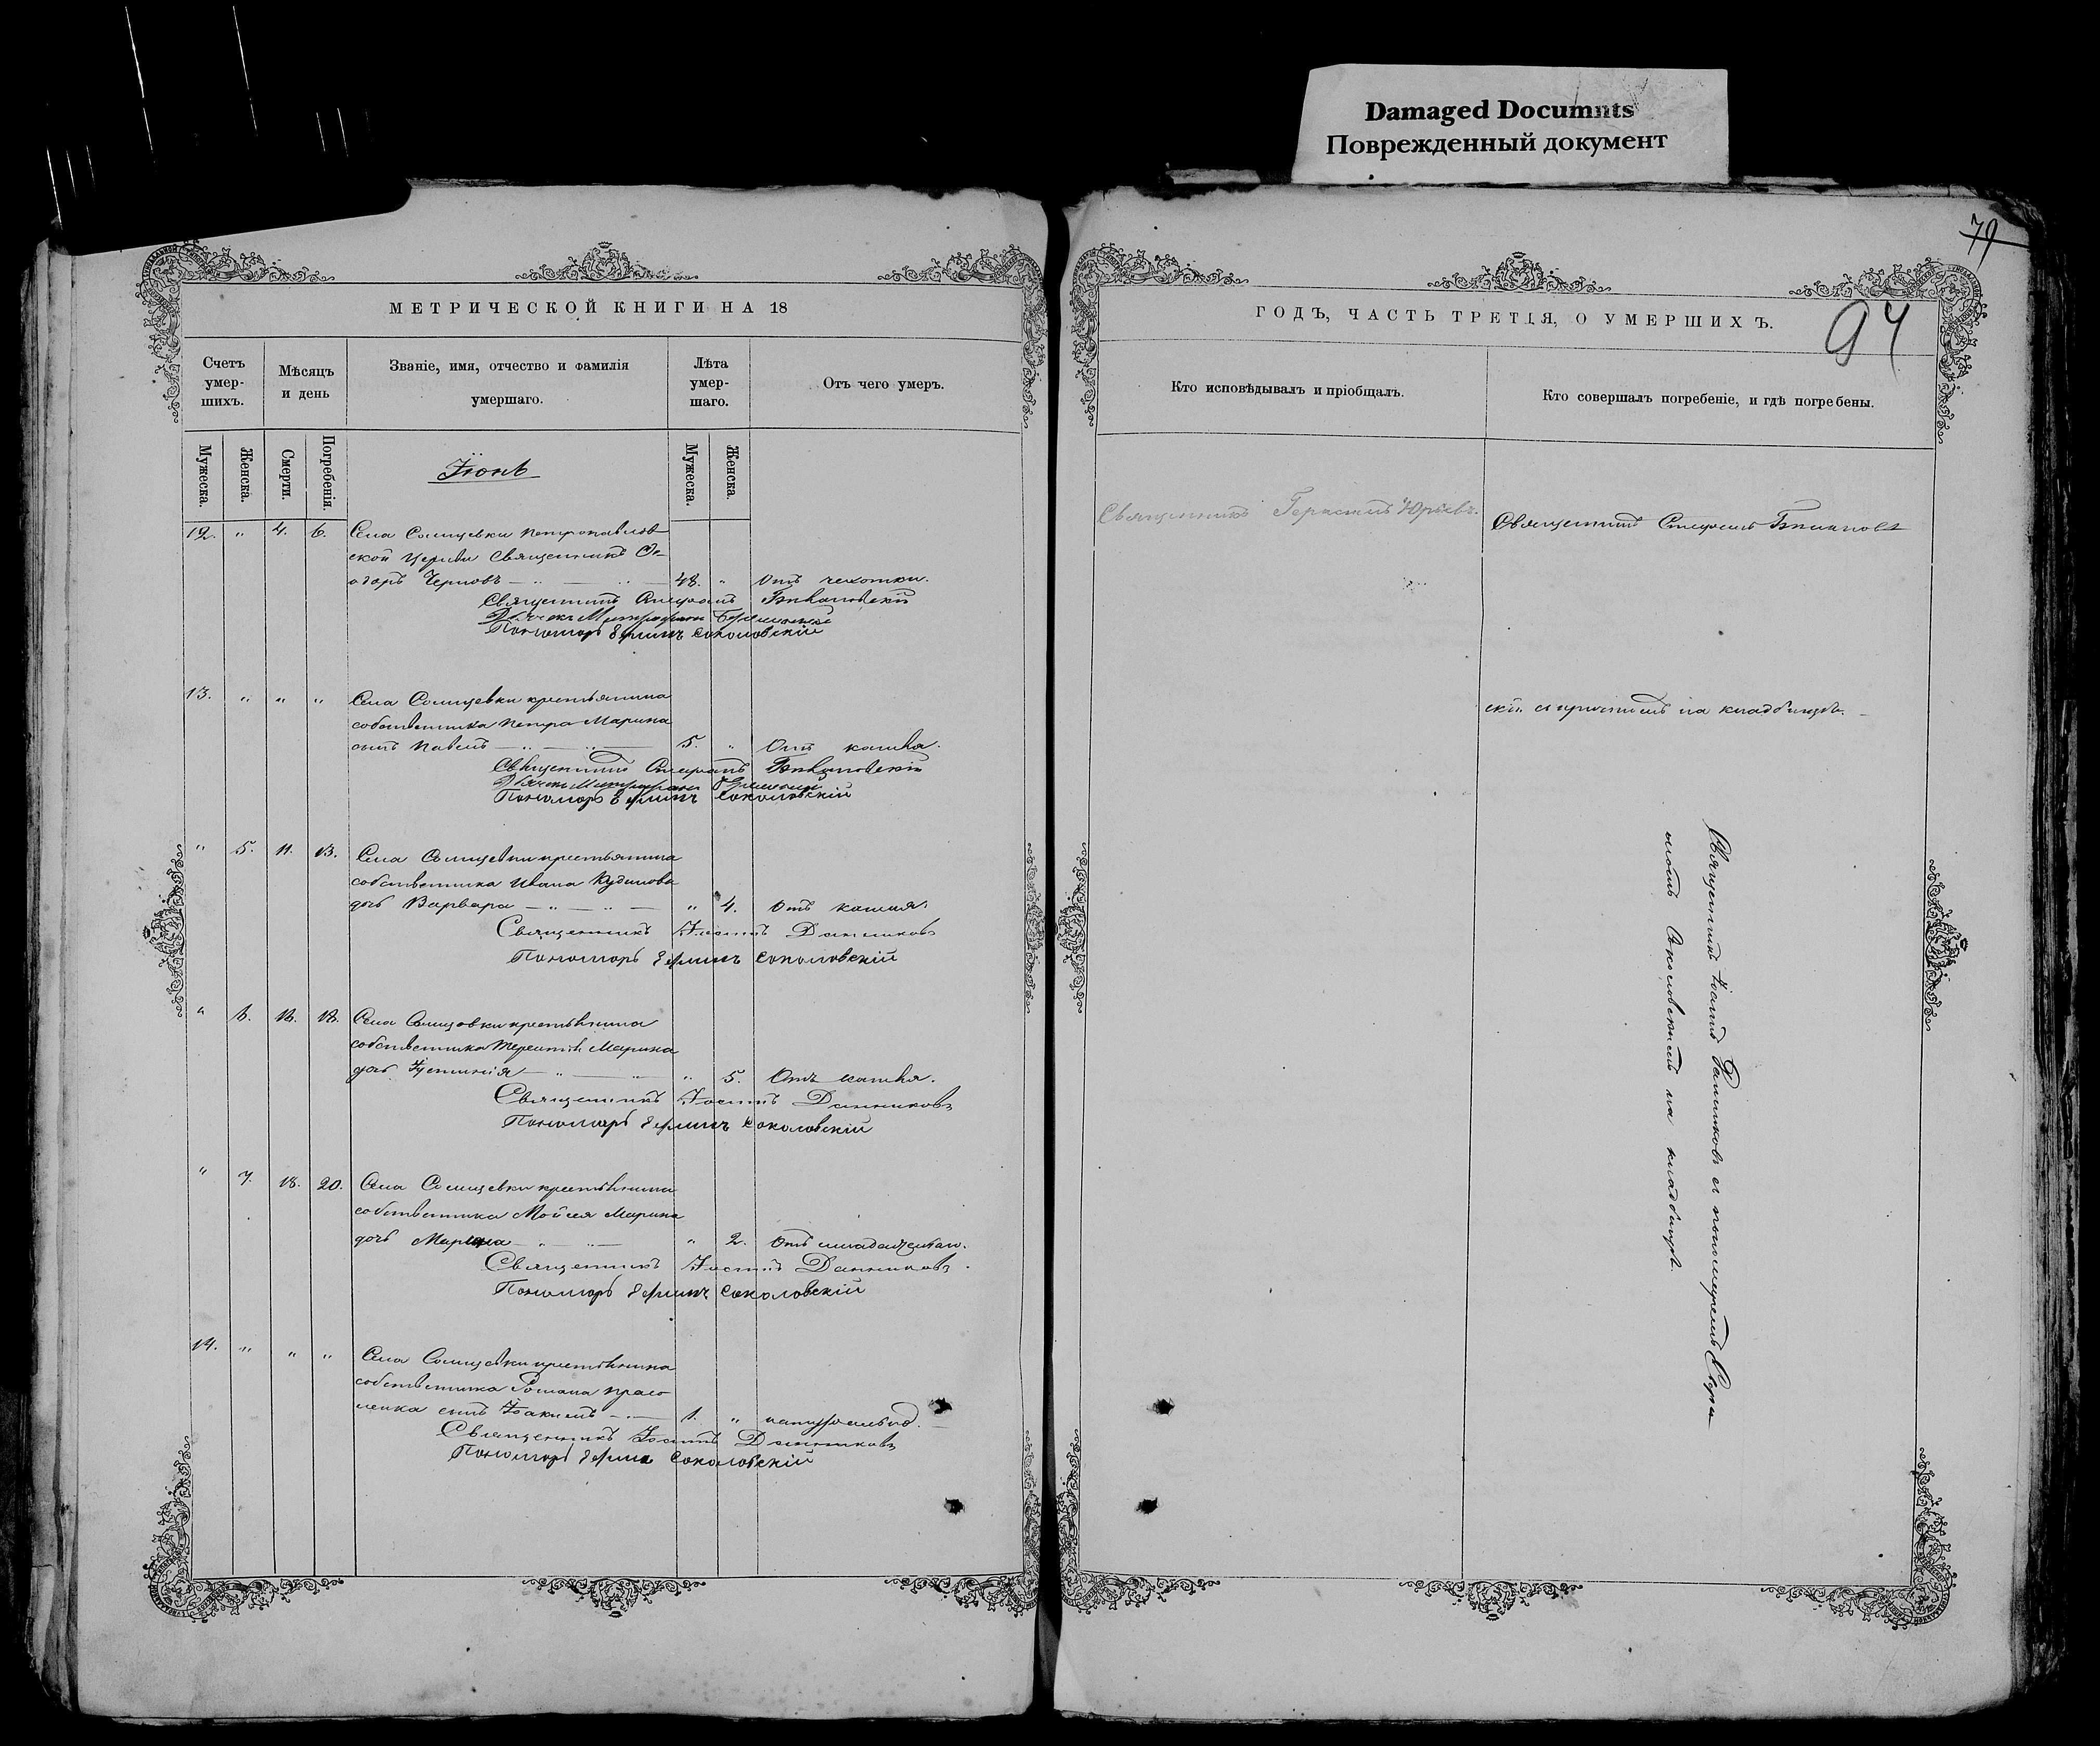 Damaged Documnts
Поврежденный документ
79
94
МЕТРИЧЕСКОЙ КНИГИ НА 18
Счетъ умер-шихъ.
Мѣсяцъ и день
Званіе, имя, отчество и фамилія умершаго.
Лѣта умер-шаго.
Отъ чего умеръ.
Мужеска.
Женска.
Смерти.
Погребенія.
Мужеска.
Женска.
Іюнь
12. " 4. 6. Села Солнцевки Петропавлов
ской Церкви Священникъ Ѳе
одоръ Черновъ 48. " Отъ чахотки.
Священникъ Стефанъ
Пономарь Ефимъ Соколовскій
13. " " " Села Солнцевки крестьянина
собственника Петра Марина
сынъ Павелъ 5. " Отъ кашля.
Священникъ Стефанъ
Пономарь Ефимъ Соколовскій
" 5. 11. 13. Села Солнцевки крестьянина
собственника Ивана Кудинова
дочь Варвара " 4. Отъ кашля.
Священникъ Іоаннъ Данниковъ
Пономарь Ефимъ Соколовскій
" 6. 12. 12. Села Солнцовки крестьянина
собственника Терентія Марина
дочь " 5. Отъ кашля.
Священникъ Іоаннъ Данниковъ
Пономарь Ефимъ Соколовскій
" 7. 18. 20. Села Солнцевки крестьянина
собственника Мойсея Марина
дочь " 2. Отъ
Священникъ Іоаннъ Данниковъ.
Пономарь Ефимъ Соколовскій
14. " " " Села Солнцевки крестьянина
собственника Романа
сынъ Іоакимъ 1. "
Священникъ Іоаннъ Данниковъ
Пономарь Ефимъ Соколовскій
ГОДЪ, ЧАСТЬ ТРЕТІЯ, О УМЕРШИХЪ.
Кто исповѣдывалъ и пріобщалъ.
Кто совершалъ погребеніе, и гдѣ погребены.
Священникъ Герасимъ Юрьевъ.
Священникъ Стефанъ
скій съ причтомъ на кладбищѣ.
Священникъ Іоаннъ Данниковъ съ пономаремъ Ефи
момъ Соколовскимъ на кладбищѣ.